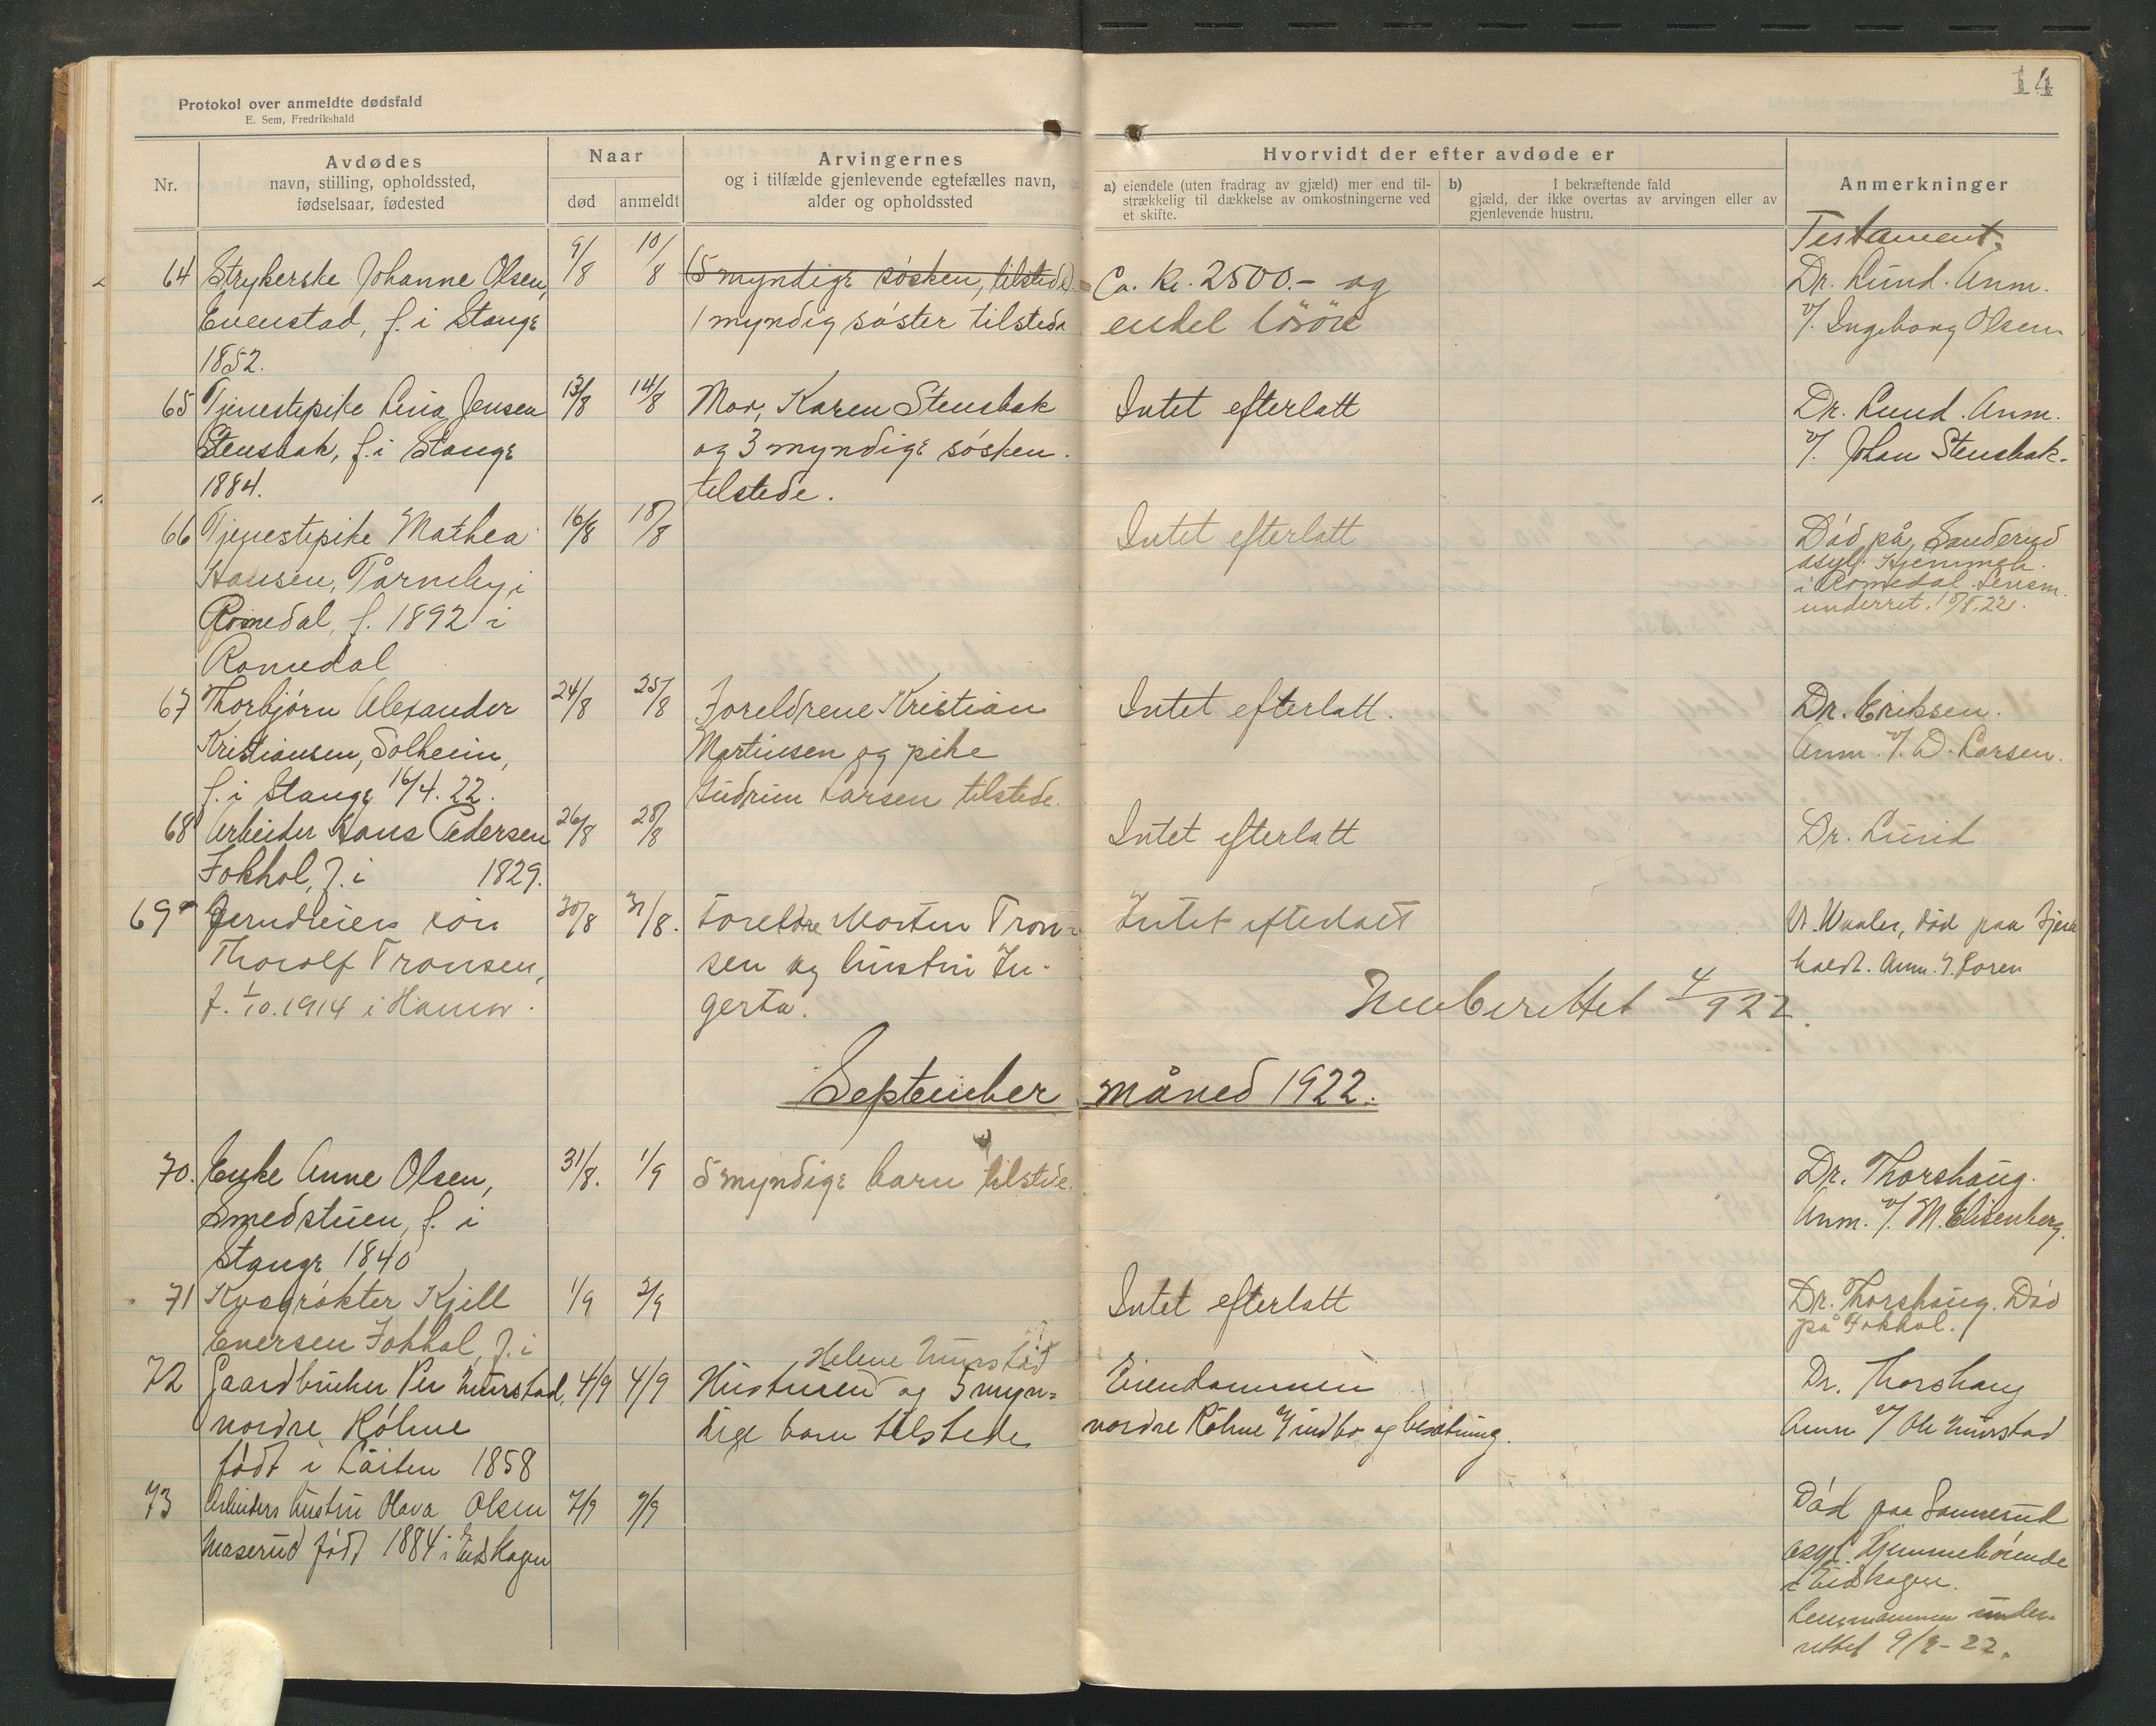 14
Protokol over anmeldte dødsfald
E. Sem, Fredrikshald
Nr.
Avdødes
navn, stilling, opholdssted,
fødselsaar, fødested
Naar
død
anmeldt
Arvingernes
og i tilfælde gjenlevende egtefælles navn,
alder og opholdssted
Hvorvidt der efter avdøde er
a) eiendele (uten fradrag av gjæld) mer end til-
strækkelig til dækkelse av omkostningerne ved
et skifte.
b) I bekræftende fald
gjæld, der ikke overtas av arvingen eller av
gjenlevende hustru.
Anmerkninger
64 Strykerske Johanne Olsen,
Evenstad, f. i Stange
1852.
9/8
10/8
(5 myndige søsken, tilstede)
1 myndig søster tilstede
Ca. Kr. 2500.- og
endel løsøre
Testament.
Dr. Lund. Anm.
v/. Ingeborg Olsen
65 Tjenestepike Lina Jensen
Stensbak, f. i Stange
1884.
13/8
14/8
Mor, Karen Stensbak
og 3 myndige søsken.
tilstede.
Intet efterlatt
Dr. Lund. Anm.
v/. Johan Stensbak.
66 Tjenestepike Mathea
Hansen, Tårneby i
Romedal, f. 1892 i
Romedal
16/8
18/8
Intet efterlatt
Død på Sanderud
asyl. Hjemmeh.
i Romedal. Lensm.
underret. 18/8.22.
67 Thorbjørn Alexander
Kristiansen, Solheim,
f. i Stange 16/4.22.
24/8
25/8
Foreldrene Kristian
Martinsen og pike
Gudrun Larsen tilstede.
Intet efterlatt.
Dr. Eriksen.
Anm. v/. D. Larsen.
68 Arbeider Hans Pedersen
Fokhol, f. i 1829.
26/8
28/8
Intet efterlatt
Dr. Lund
69 Gjerndleiers søn
Thorolf Tronsen,
f. 1/10.1914 i Hamar.
30/8
31/8.
Foreldre Morten Tron-
sen og hustru In-
gerta.
Intet efterlatt
Dr. Waaler, død paa
Anm. Soren
Indberettet 4/9 22.
September måned 1922.
70. Enke Anne Olsen,
Smedstuen, f. i
Stange 1840
31/8.
1/9
5 myndige barn tilstede.
Dr. Thorshaug.
Anm. v/. M. Elisenberg.
71 Kvægrøkter Kjell
Eversen Fokhol, f. i
1/9
2/9
Intet efterlatt
Dr. Thorshaug. Død
på Fokhol.
72 Gaardbruker Per Murstad,
nordre Røhne
født i Løiten 1858
4/9
4/9
Helene Murstad
Hustruen og 5 myn-
dige barn tilstede
Eiendommen
nordre Røhne m/ indbo og besætning.
Dr. Thorshaug
Anm v/ Ole Murstad
73 Arbeiders hustru Olava Olsen
Maserud født 1884 i Eidskogen
7/9
9/9
Død paa Sannerud
asyl. Hjemmehørende
i Eidskogen.
Lensmannen under-
rettet 9/9-22.